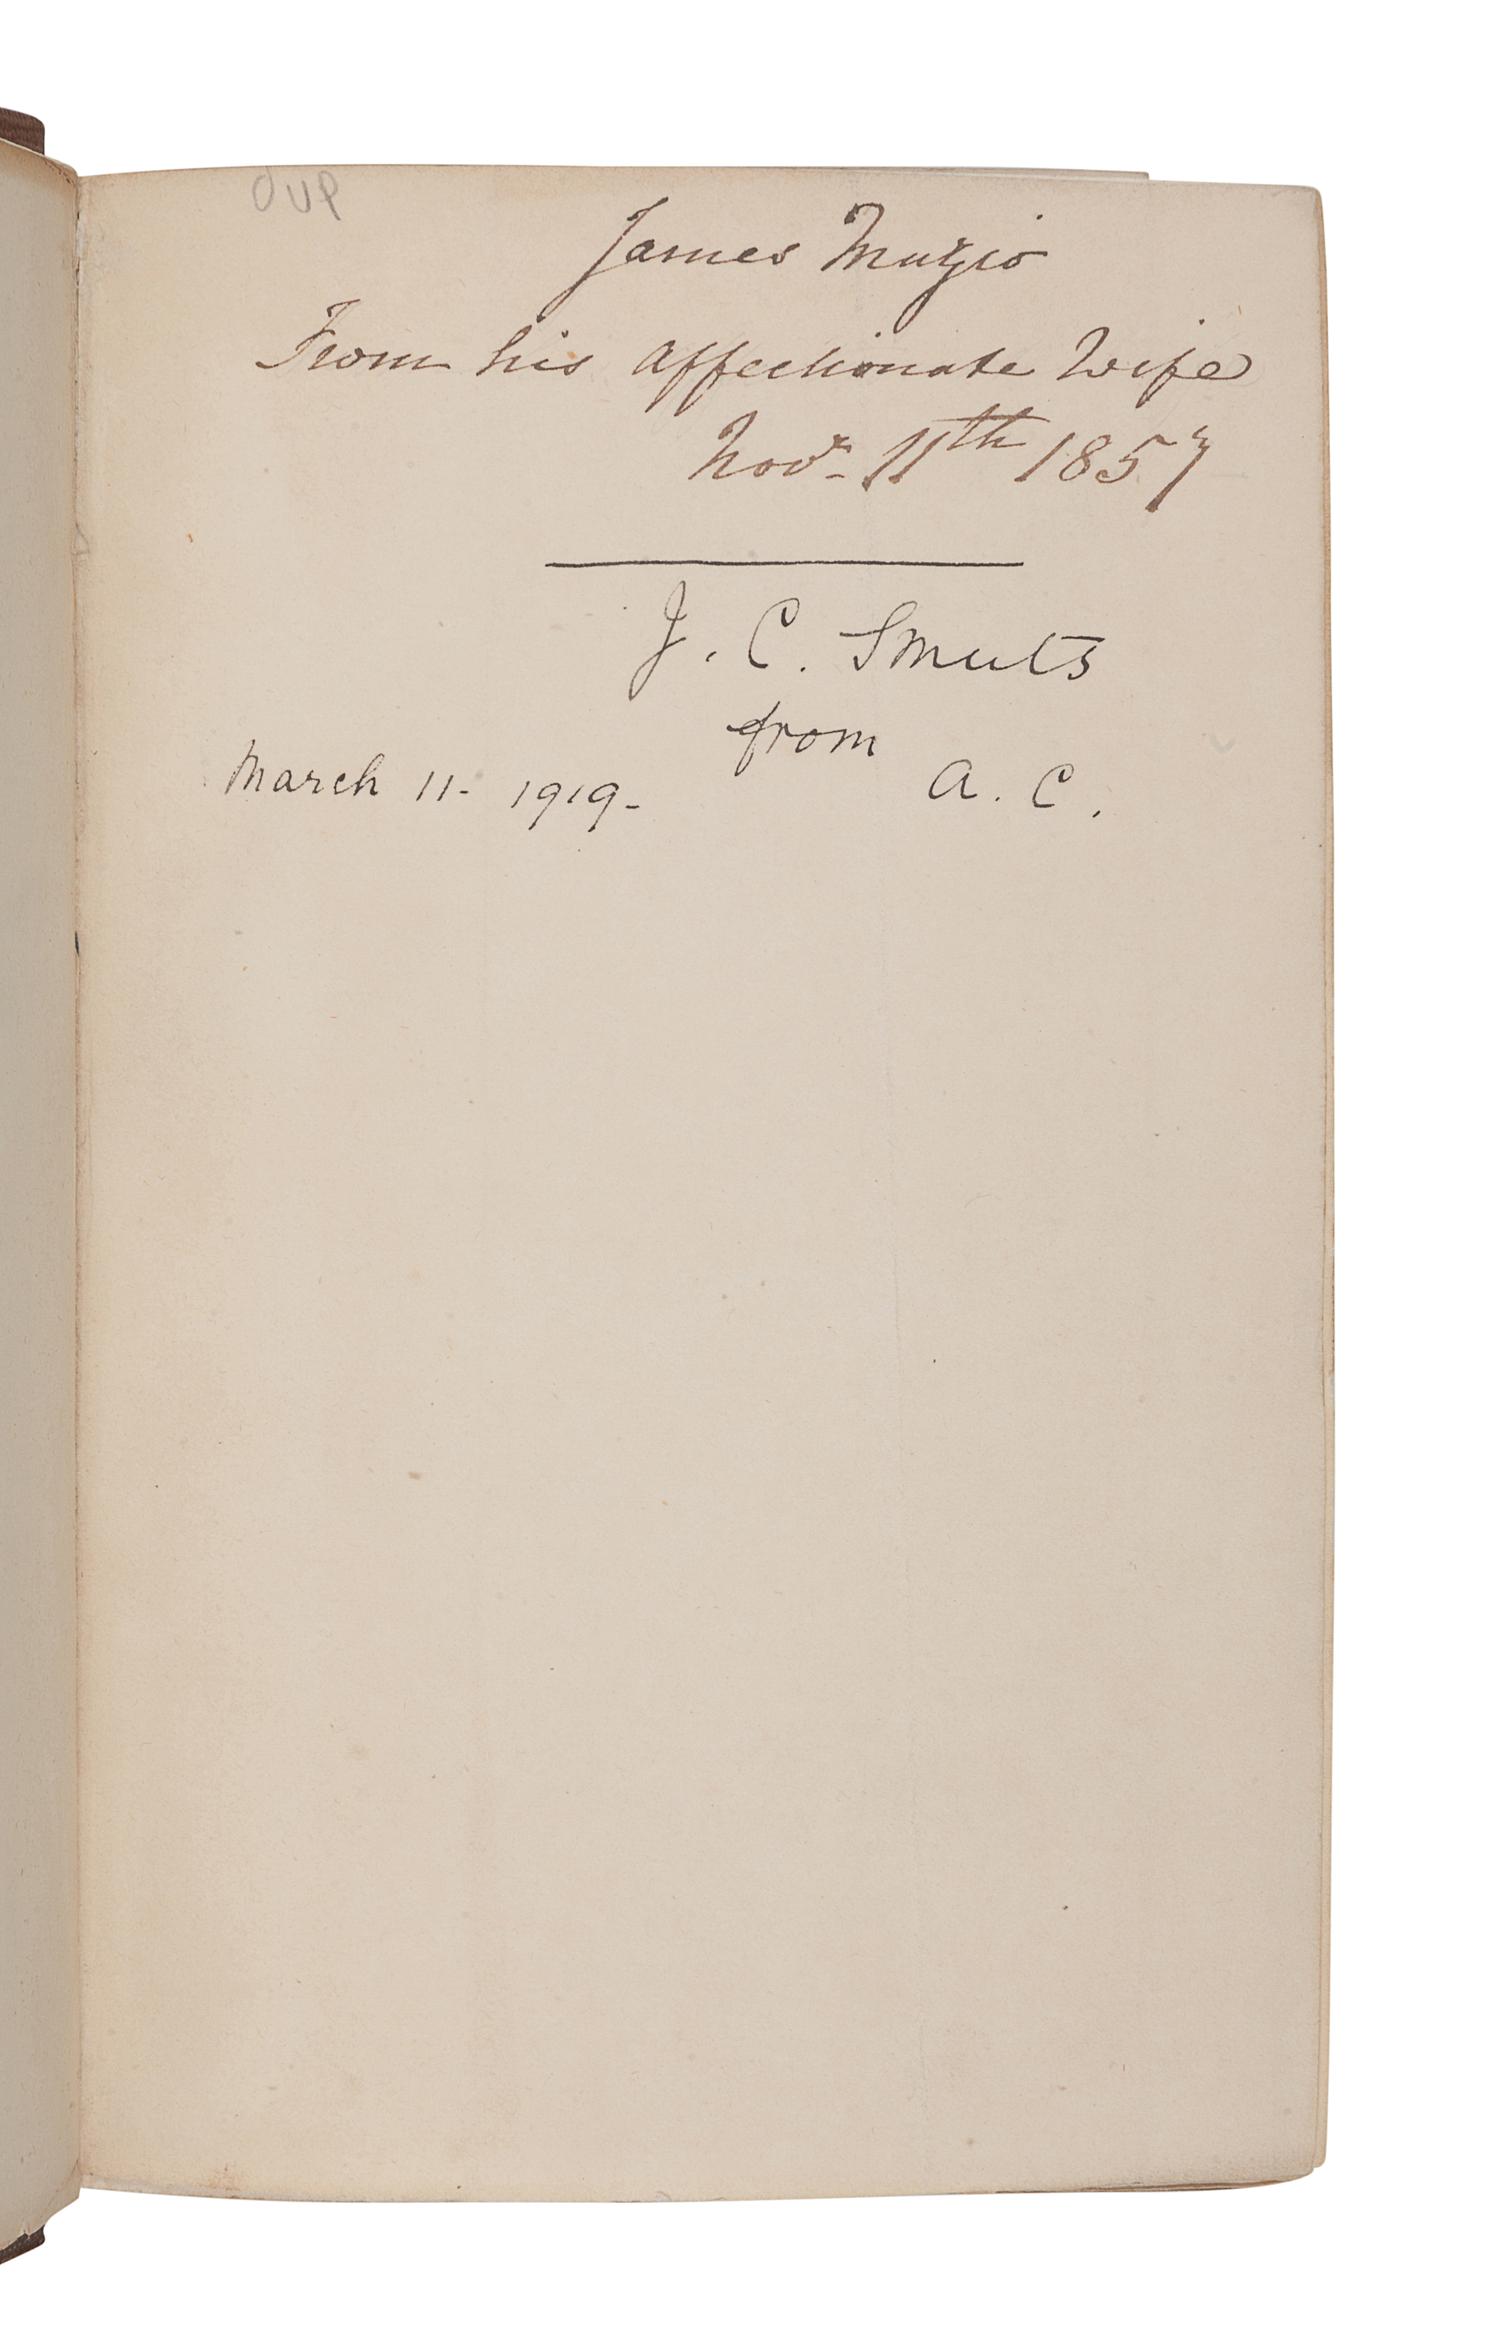 OUP
James Muzio
From his affectionate Wife
Novr. 11th 1857
J. C. Smuts
from
A. C.
March 11 - 1919 -